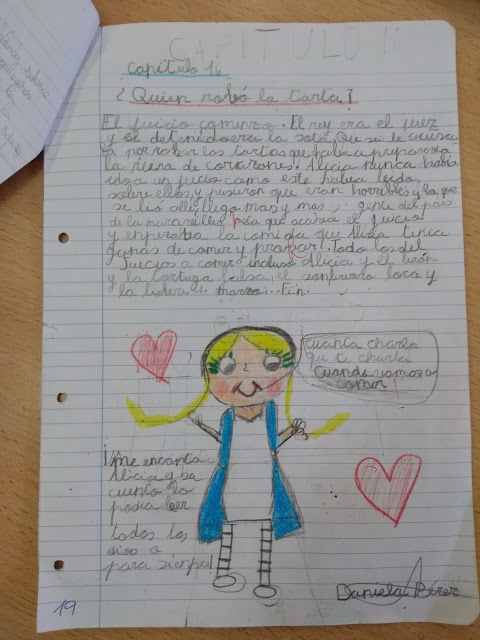 CAPITULO 1
Capitulo 16
¿Quien robó la tarta?
El juicio comenzo. El rey era el juez
y el detenido era la sota, Que se le acusaba
por robar las tartas que habia preparado
la reina de corazones. Alicia nunca habia
un juicio como este habia leido
sobre ellos y pusieron que eran horribles y la que
se lió allí llego mas y mas... gente del pais
de la maravillas, que acabara el juicio
y empezaba la comida que Alicia tenia
ganas de comer y probar! Todo los del
juicios a comer incluso Alicia y el lirón
y la tortuga falsa, el sombrerero loco y
la liebre de marzo... Fin.
cuanta charla
que te charla
Cuando vamos a
comer!
¡Me encanta
Alicia y
cuento lo
podia leer
todos los
dias
para siempre!
Daniela Pérez
19